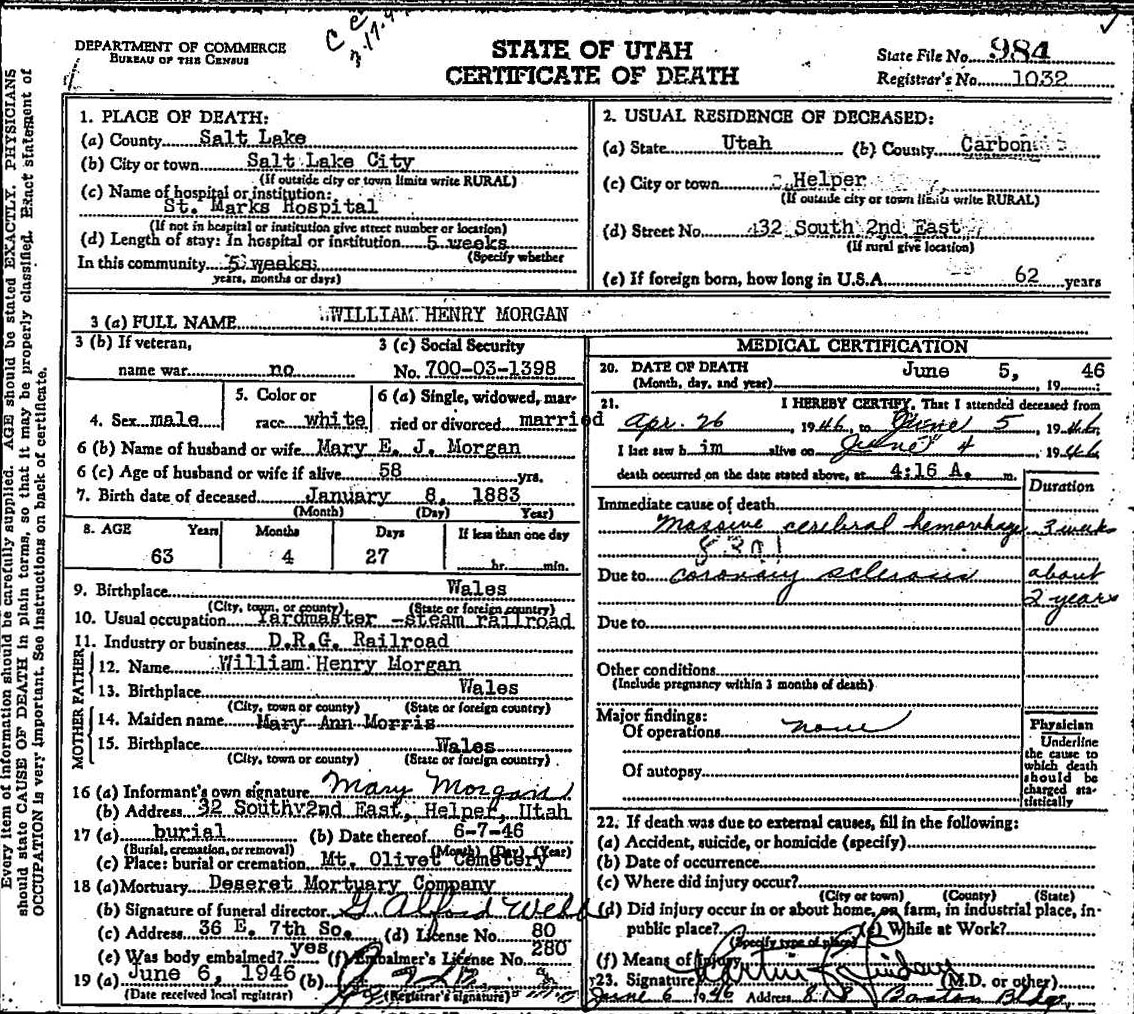 DEPARTMENT OF COMMERCE
BUREAU OF THE CENSUS
STATE OF UTAH
CERTIFICATE OF DEATH
State File No. 984
Registrar's No. 1032
Every item of information should be carefully supplied. AGE should be stated EXACTLY. PHYSICIANS
should state CAUSE OF DEATH in plain terms, so that it may be properly classified. Exact statement of
OCCUPATION is very important. See instructions on back of certificate.
1. PLACE OF DEATH:
(a) County Salt Lake
(b) City or town Salt Lake City
(If outside city or town limits write RURAL)
(c) Name of hospital or institution:
St. Marks Hospital
(If not in hospital or institution give street number or location)
(d) Length of stay: In hospital or institution 5 weeks
(Specify whether
In this community 5 weeks
years, months or days)
2. USUAL RESIDENCE OF DECEASED:
(a) State Utah (b) County Carbon
(c) City or town Helper
(If outside city or town limits write RURAL)
(d) Street No. 32 South 2nd East
(If rural give location)
(e) If foreign born, how long in U.S.A. 62 years
3 (a) FULL NAME WILLIAM HENRY MORGAN
3 (b) If veteran,
name war no
3 (c) Social Security
No. 700-03-1398
4. Sex male
5. Color or
race white
6 (a) Single, widowed, mar-
ried or divorced married
6 (b) Name of husband or wife Mary E. J. Morgan
6 (c) Age of husband or wife if alive 58 yrs.
7. Birth date of deceased January 8, 1883
(Month) (Day) Year)
8. AGE Years Months Days If less than one day
63 4 27 hr. min.
9. Birthplace Wales
(City, town, or county) (State or foreign country)
10. Usual occupation Yardmaster -steam railroad
11. Industry or business D.R.G. Railroad
FATHER
12. Name William Henry Morgan
13. Birthplace Wales
(City, town or county) (State or foreign country)
MOTHER
14. Maiden name Mary Ann Morris
15. Birthplace Wales
(City, town or county) (State or foreign country)
16 (a) Informant's own signature Mary Morgan
(b) Address 32 South 2nd East, Helper, Utah
17 (a) burial (b) Date thereof 6-7-46
(Burial, cremation, or removal) (Month) (Day) (Year)
(c) Place: burial or cremation Mt. Olivet Cemetery
18 (a) Mortuary Deseret Mortuary Company
(b) Signature of funeral director G Alford Webb
(c) Address 36 E. 7th So. (d) License No. 80
(e) Was body embalmed? yes (f) Embalmer's License No. 280
19 (a) June 6, 1946 (b)
(Date received local registrar) (Registrar's signature)
MEDICAL CERTIFICATION
20. DATE OF DEATH June 5, 46
(Month, day, and year) 19
21. I HEREBY CERTIFY, That I attended deceased from
Apr. 26, 1946, to June 5, 1946
I last saw h im alive on June 4 1946
death occurred on the date stated above, at 4:16 A. m.
Duration
Immediate cause of death
Massive cerebral hemorrhage 3 weeks
Due to coronary sclerosis about
2 years
Due to
Other conditions
(Include pregnancy within 3 months of death)
Major findings:
Of operations none
Of autopsy
Physician
Underline
the cause to
which death
should be
charged sta-
tistically
22. If death was due to external causes, fill in the following:
(a) Accident, suicide, or homicide (specify)
(b) Date of occurrence
(c) Where did injury occur?
(City or town) (County) (State)
(d) Did injury occur in or about home, on farm, in industrial place, in-
public place? (e) While at Work?
(Specify type of place)
(f) Means of Injury
23. Signature (M.D. or other)
June 6 1946 Address Boston Bldg.